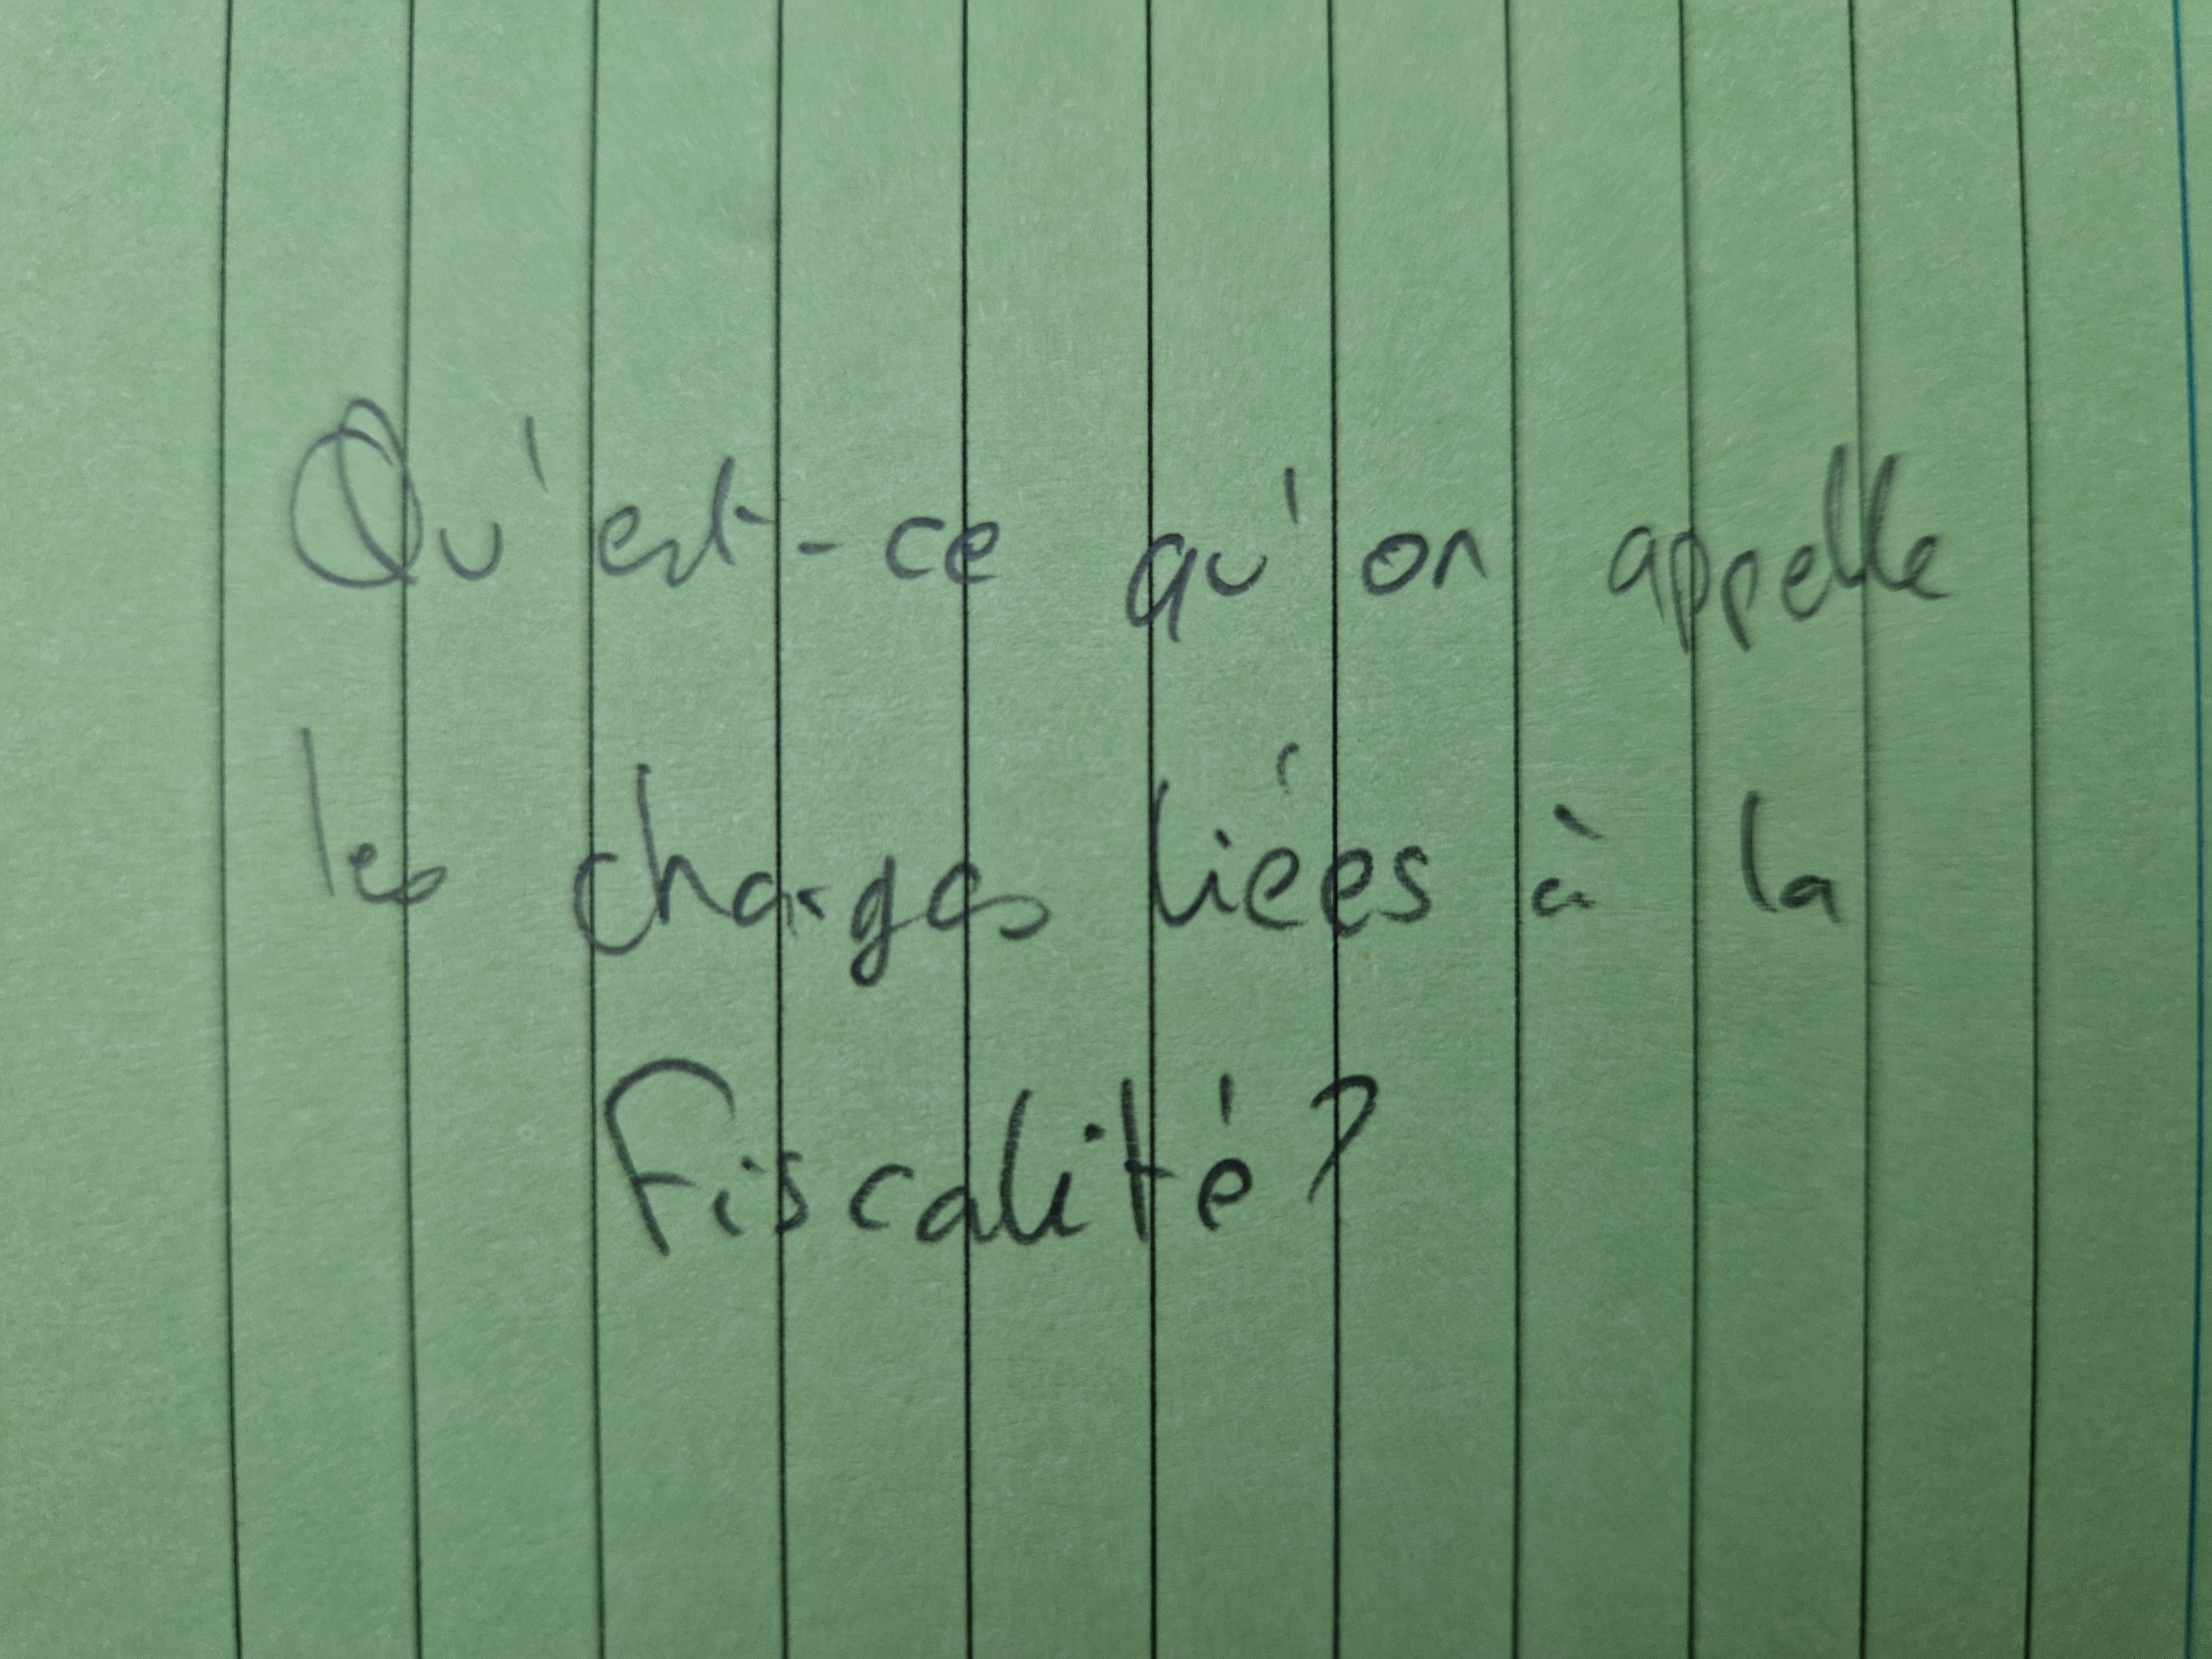 Qu'est-ce qu'on appelle
les charges liées à la
Fiscalité?